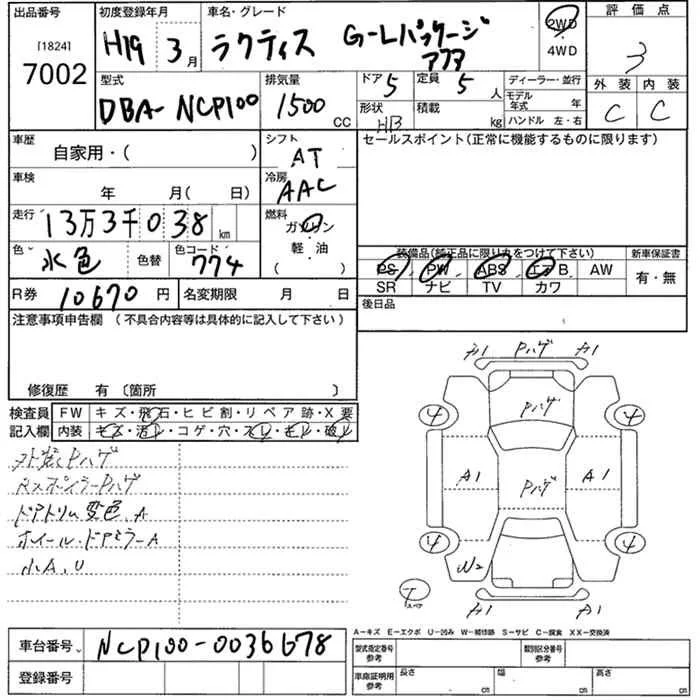 出品番号 初度登録年月 車名・グレード 評価点
[1824] H19 3月 ラクティス G-Lパッケージ 2WD 3
7002 4WD
型式 排気量 ドア 5 定員 5人 ディーラー・並行 外装 内装
DBA-NCP100 1500 CC 形状 HB 積載 kg モデル年式 年 C C
ハンドル 左・右
車歴 シフト セールスポイント(正常に機能するものに限ります)
自家用・( ) AT
車検 冷房
年 月( 日) AAC
走行 燃料
13万3千038 km ガソリン
色 色替 色コード 軽・油
水色 774 ( )
装備品(純正品に限り丸をつけて下さい) 新車保証書
PS PW ABS エアB AW 有・無
SR ナビ TV カワ
R券 10670円 名変期限 月 日 後日品
注意事項申告欄 (不具合内容等は具体的に記入して下さい)
修復歴 有〔箇所 〕
検査員 FW キズ・飛石・ヒビ割・リペア跡・X要
記入欄 内装 キズ・汚レ・コゲ・穴・スレ・モレ・破レ
A1 Pハゲ A1
4 Pハゲ 4
A1 Pハゲ A1
4 W2 4
T スペア
A1 A1
Pハゲ
Rスポイラー Pハゲ
ドアトリム変色、A
ホイール・ドアミラーA
小A、U
A-キズ E-エクボ U-凹み W-補修跡 S-サビ C-腐食 XX-交換済
車台番号 NCP100-0036678
登録番号
型式指定番号 参考 類別区分番号 参考
車庫証明用 参考 長さ cm 幅 cm 高さ cm